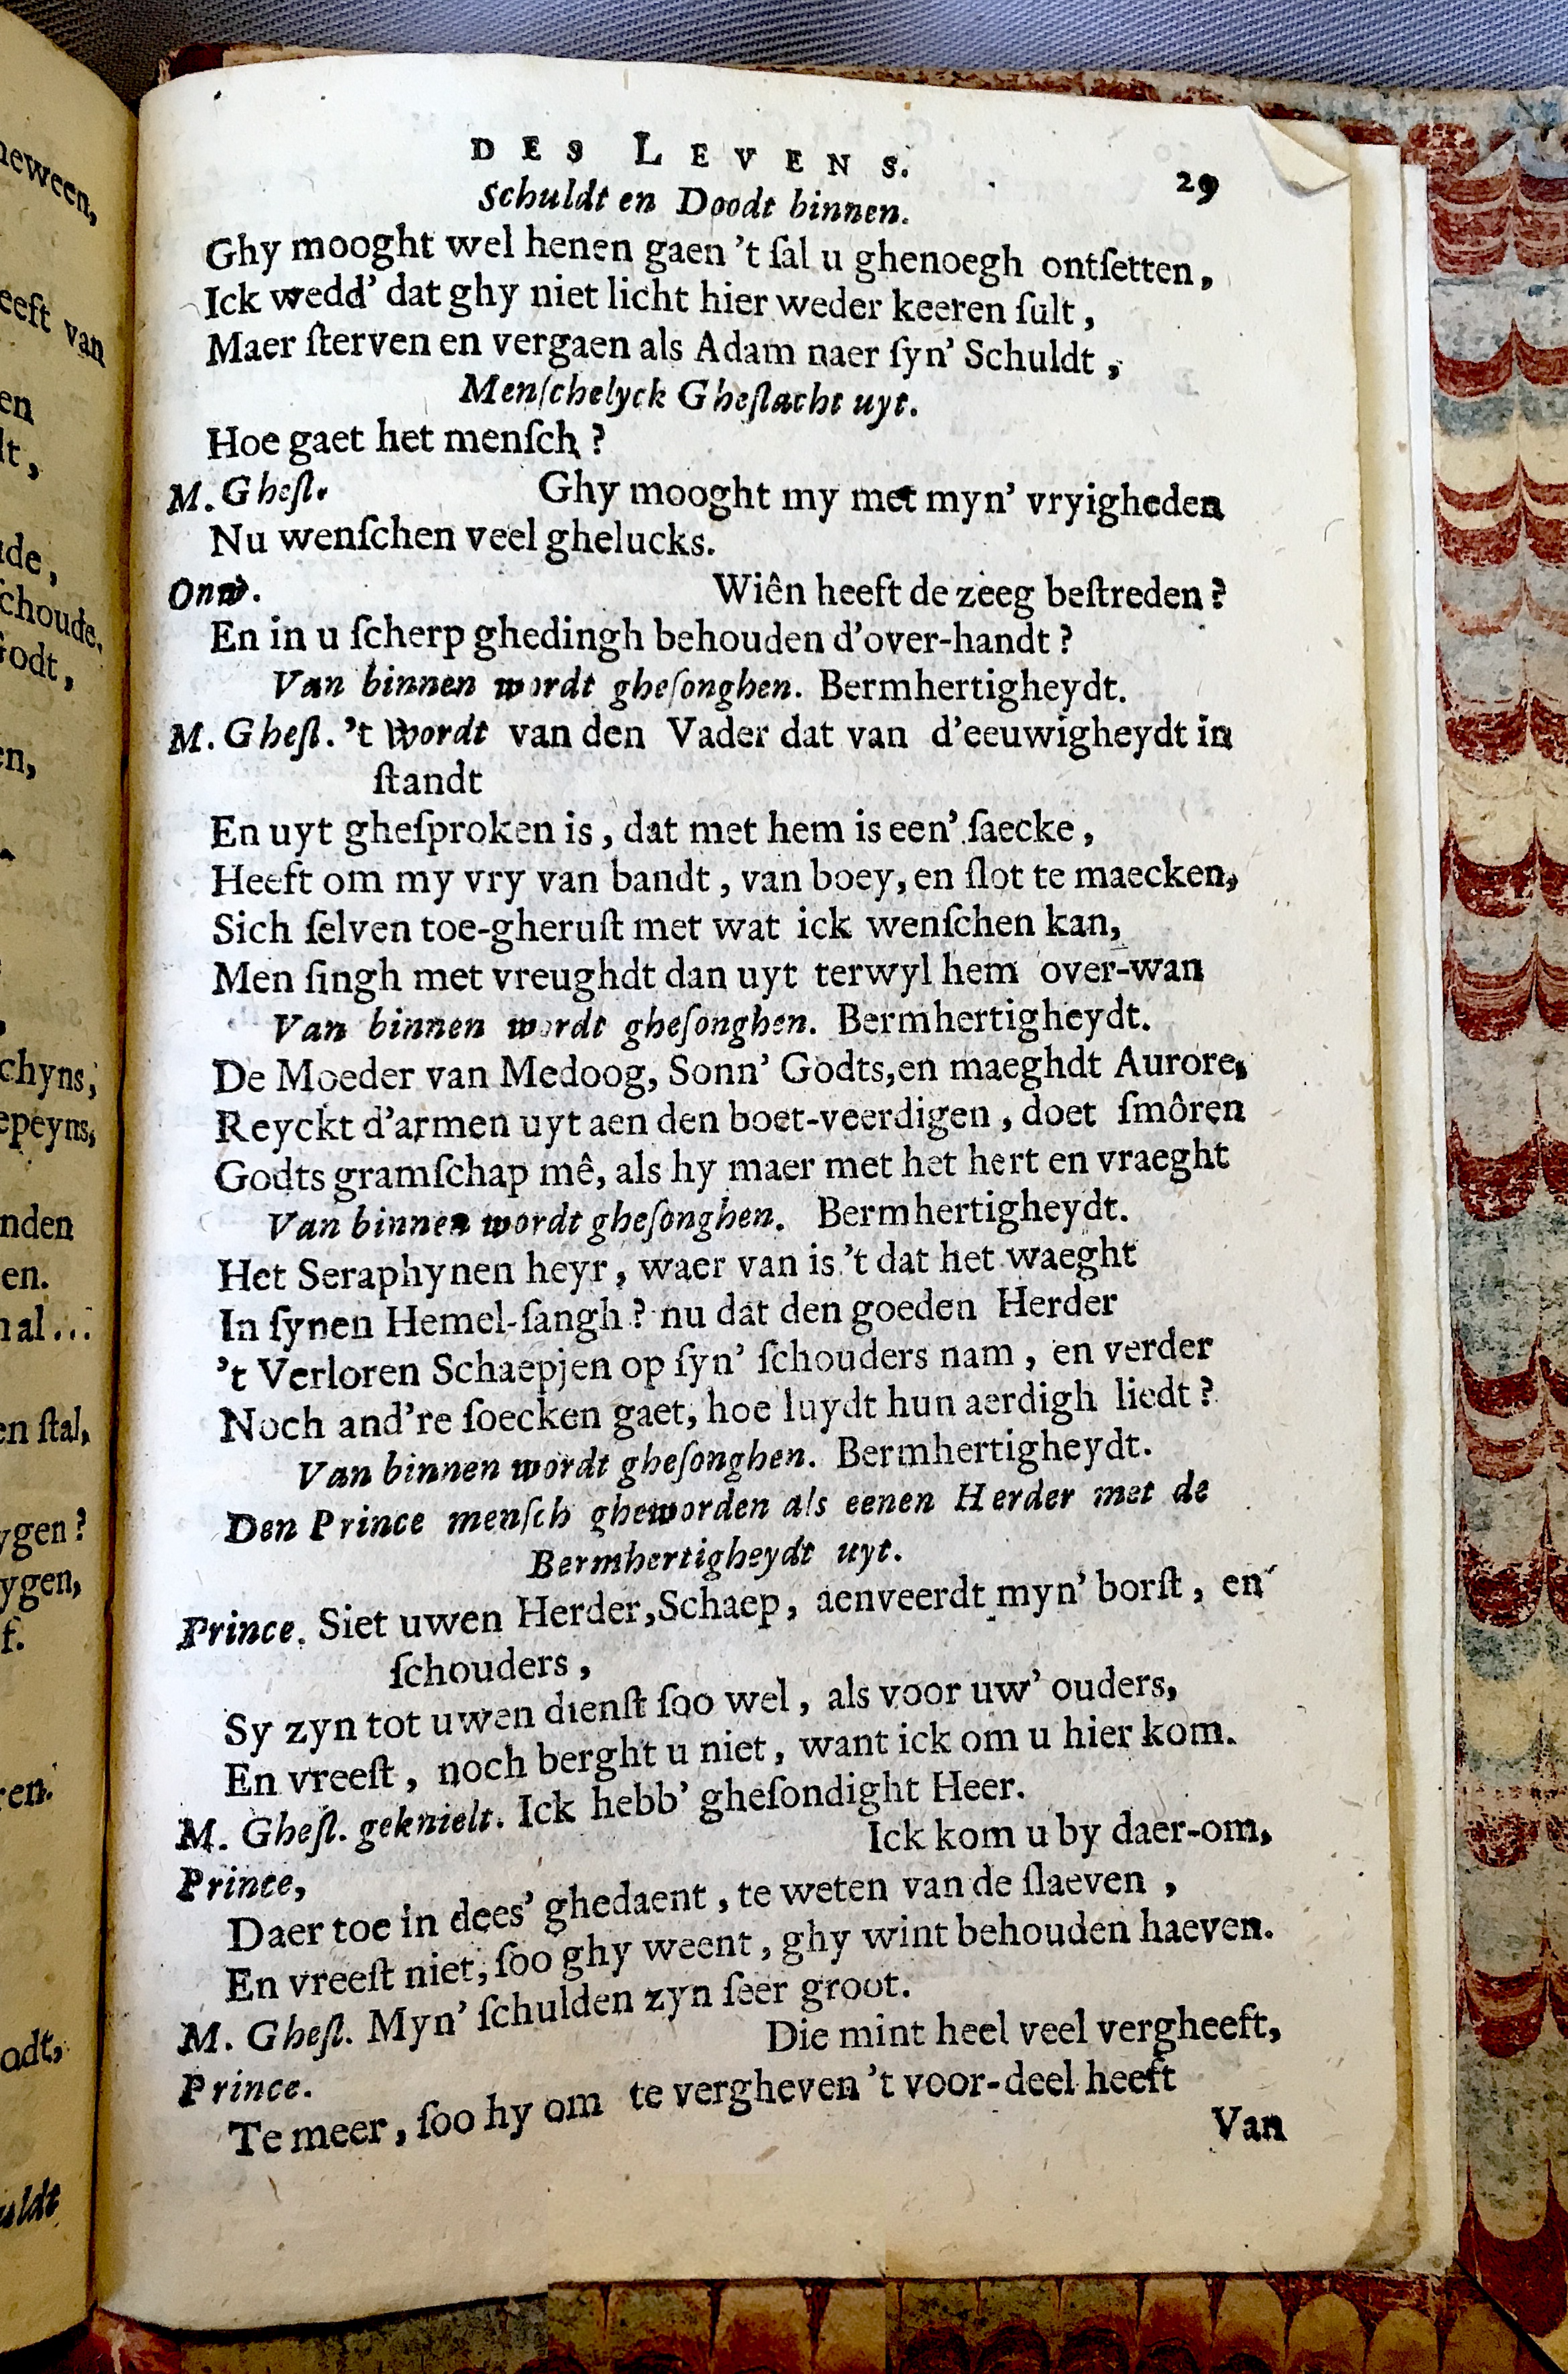 DES LEVENS. 29
Schuldt en Doodt binnen.
Ghy mooght wel henen gaen 't ſal u ghenoegh ontſetten,
Ick wedd' dat ghy niet licht hier weder keeren ſult,
Maer ſterven en vergaen als Adam naer ſyn' Schuldt,
Menſchelyck Gheſlacht uyt.
Hoe gaet het menſch?
M. Gheſl. Ghy mooght my met myn' vryigheden
Nu wenſchen veel ghelucks.
Onw. Wiên heeft de zeeg beſtreden?
En in u ſcherp ghedingh behouden d'over-handt?
Van binnen wordt gheſonghen. Bermhertigheydt.
M. Gheſl. 't Wordt van den Vader dat van d'eeuwigheydt in
ſtandt
En uyt gheſproken is, dat met hem is een' ſaecke,
Heeft om my vry van bandt, van boey, en ſlot te maecken,
Sich ſelven toe-gheruſt met wat ick wenſchen kan,
Men ſingh met vreughdt dan uyt terwyl hem over-wan
Van binnen wordt gheſonghen. Bermhertigheydt.
De Moeder van Medoog, Sonn' Godts, en maeghdt Aurore,
Reyckt d'armen uyt aen den boet-veerdigen, doet ſmôren
Godts gramſchap mê, als hy maer met het hert en vraeght
Van binnen wordt gheſonghen. Bermhertigheydt.
Het Seraphynen heyr, waer van is 't dat het waeght
In ſynen Hemel-ſangh? nu dat den goeden Herder
't Verloren Schaepjen op ſyn' ſchouders nam, en verder
Noch and're ſoecken gaet, hoe luydt hun aerdigh liedt?
Van binnen wordt gheſonghen. Bermhertigheydt.
Den Prince menſch gheworden als eenen Herder met de
Bermhertigheydt uyt.
Prince. Siet uwen Herder, Schaep, aenveerdt myn' borſt, en
ſchouders,
Sy zyn tot uwen dienſt ſoo wel, als voor uw' ouders,
En vreeſt, noch berght u niet, want ick om u hier kom.
M. Gheſl. geknielt. Ick hebb' gheſondight Heer.
Prince, Ick kom u by daer-om,
Daer toe in dees' ghedaent, te weten van de ſlaeven,
En vreeſt niet, ſoo ghy weent, ghy wint behouden haeven.
M. Gheſl. Myn' ſchulden zyn ſeer groot.
Prince. Die mint heel veel vergheeft,
Te meer, ſoo hy om te vergheven 't voor-deel heeft
Van